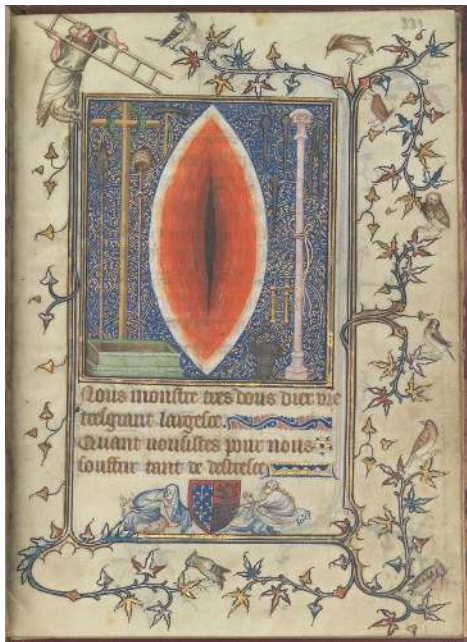 331
Nous monstre tres dous dieu vre
tresgrant largesce.
Quant uousistes pour nous
souffrir tant de destresce